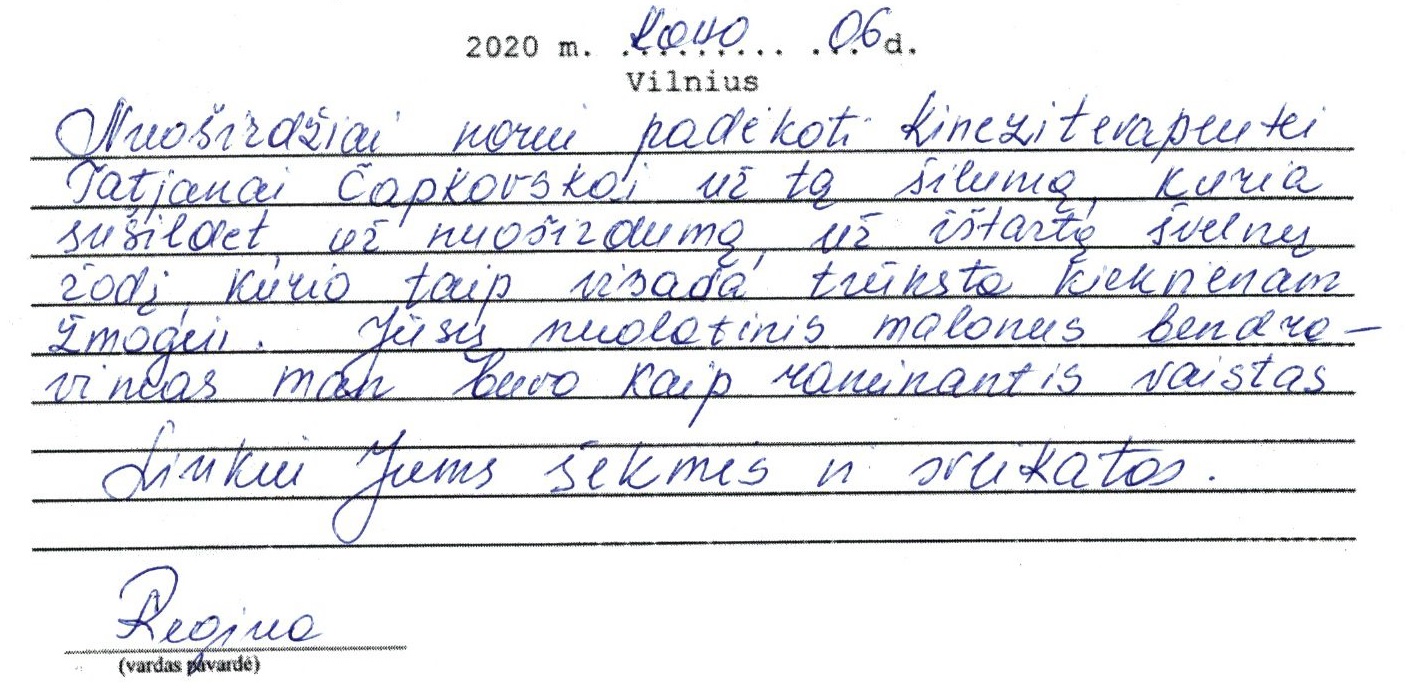 2020 m. Kovo 06 d.
Vilnius
Nuoširdžiai noriu padėkoti kineziterapeutei
Tatjanai Čapkovskai už tą šilumą, kuria
sušildėt, už nuoširdumą, už ištartą švelnų
žodį, kurio taip visada trūksta kiekvienam
žmogui. Jūsų nuolatinis malonus bendra-
vimas man buvo kaip raminantis vaistas
Linkiu Jums sėkmės ir sveikatos.
Regina
(vardas pavardė)